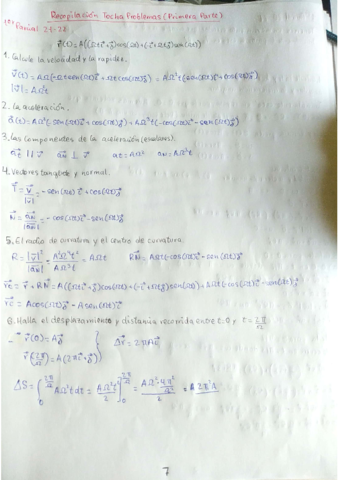 Recopilación Tocho Problemas (Primera Parte)
1er Parcial 21-22
r⃗(t) = A((Ωt i⃗ + j⃗)cos(Ωt) + (-i⃗ + Ωt j⃗)sen(Ωt))
1. Calcule la velocidad y la rapidez.
v⃗(t) = AΩ(-Ωt sen(Ωt) i⃗ + Ωt cos(Ωt) j⃗) = AΩ²t(-sen(Ωt) i⃗ + cos(Ωt) j⃗)
|v⃗| = AΩ²t
2. La aceleración.
a⃗(t) = AΩ²(-sen(Ωt) i⃗ + cos(Ωt) j⃗) + AΩ³t(-cos(Ωt) i⃗ - sen(Ωt) j⃗)
3. Las componentes de la aceleración (escalares).
a⃗t || v⃗ a⃗n ⊥ v⃗ at = AΩ² an = AΩ³t
4. Vectores tangente y normal.
T⃗ = v⃗/|v⃗| = -sen(Ωt) i⃗ + cos(Ωt) j⃗
N⃗ = a⃗n/|a⃗n| = -cos(Ωt) i⃗ - sen(Ωt) j⃗
5. El radio de curvatura y el centro de curvatura.
R = |v⃗|²/|a⃗n| = A²Ω⁴t²/AΩ³t = AΩt RN⃗ = AΩt(-cos(Ωt) i⃗ - sen(Ωt) j⃗)
r⃗c = r⃗ + RN⃗ = A((Ωt i⃗ + j⃗)cos(Ωt) + (-i⃗ + Ωt j⃗)sen(Ωt)) + AΩt(-cos(Ωt) i⃗ - sen(Ωt) j⃗)
r⃗c = A cos(Ωt) j⃗ - A sen(Ωt) i⃗
6. Halla el desplazamiento y distancia recorrida entre t=0 y t = 2π/Ω
- r⃗(0) = A j⃗
r⃗(2π/Ω) = A(2π i⃗ + j⃗) } Δr⃗ = 2πA i⃗
ΔS = ∫₀^(2π/Ω) AΩ²t dt = AΩ²t²/2 ]₀^(2π/Ω) = AΩ² · 4π²/Ω² / 2 = A2π²
7